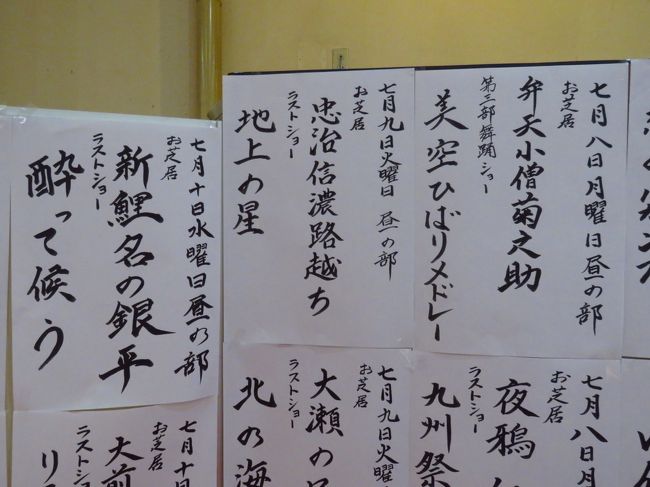 七月八日月曜日昼の部
お芝居
弁天小僧菊之助
第三部舞踊ショー
美空ひばりメドレー
七月九日火曜日 昼の部
お芝居
忠治信濃路越ち
ラストショー
地上の星
七月十日水曜日昼の部
お芝居
新鯉名の銀平
ラストショー
酔って候う
七月八日月
お芝居
夜鴉
ラストショー
九州祭
七月九日火曜
お芝居
大瀬の
ラストショー
北の海
七月十日
お芝居
大前
ラストショー
リ